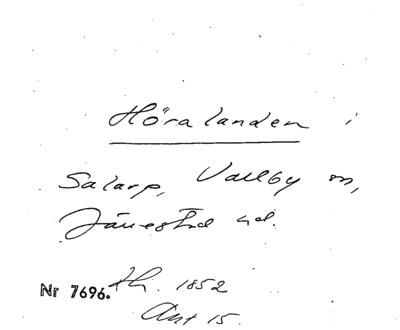 Höralanden i
Salarp, Vallby sn,
Järrestad hd.
Nr 7696. Th. 1852
Ant 15.